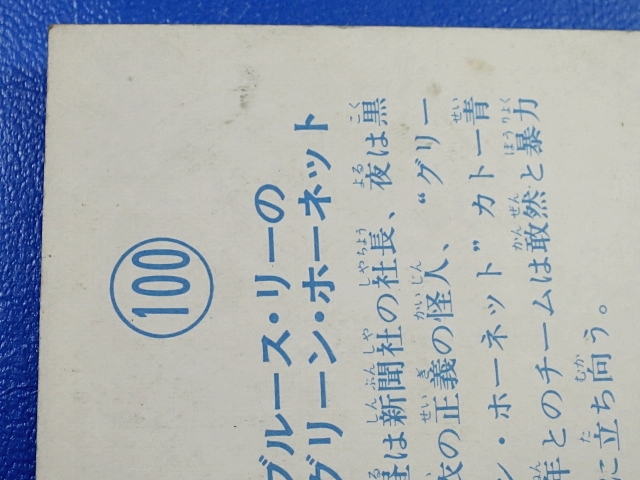 100
ブルース・リーの
グリーン・ホーネット
昼は新聞社の社長、夜は黒
衣の正義の怪人、“グリー
ン・ホーネット”カトー青
年とのチームは敢然と暴力
に立ち向う。